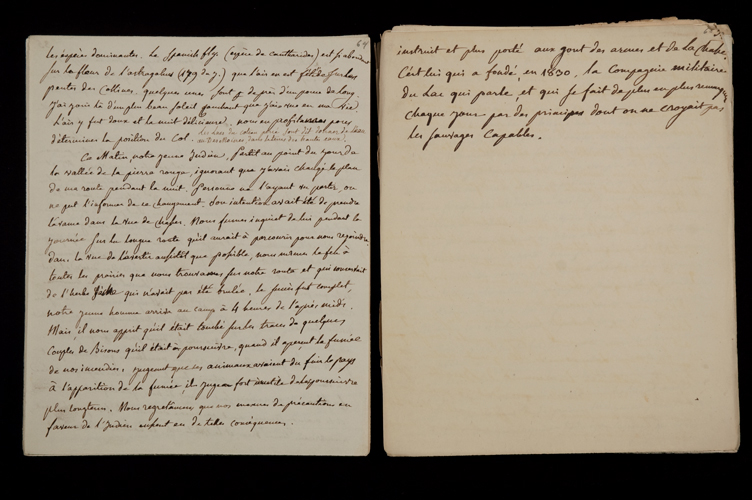 64
les espèces dominantes. La Spanish fly (espèce de cantharides) est si abondante
sur la fleur de l'astragalus (179 de J.) que l'air en est sur les
pentes des collines. quelques unes sont de près d'un pouce de long.
J'ai joui là du plus beau Soleil couchant que j'aie vu en ma vie.
L'air y fut doux et la nuit délicieuse. nous en profitâmes pour
déterminer la position du Col.
Ce Matin, notre jeune Indien, Partit au point du jour de
la vallée de la pierre rouge, ignorant que j'avais changé le plan
de ma route pendant la nuit. Personne ne l'ayant vu partir, on
ne put l'informer de ce changement. Son intention avait été de prendre
l'avance dans la vue de chasser. Nous fumes inquiet de lui pendant la
journée sur la longue route qu'il aurait à parcourir pour nous rejoindre.
dans la vue de l'avertir aussitôt que possible, nous mimes le feu à
toutes les prairies que nous trouvames sur notre route et qui
de l'herbe qui n'avait pas été brulée. le succès fut complet,
notre jeune homme arriva au camp à 4 heures de l'après midi.
Mais, il nous apprit qu'il était tombé sur les traces de quelques
Couples de Bisons qu'il était à poursuivre, quand il aperçut la fumée
de nos incendies. jugeant que ces animaux avaient du fuir le pays
à l'apparition de la fumée, il jugea fort inutile de les poursuivre
plus longtems. Nous regrettames que nos mesures de précautions en
faveur de l'Indien eussent eu de telles conséquences.
instruit et plus porté aux gout des armes et de la chasse.
C'est lui qui a fondé, en 1830, la Compagnie militaire
du Lac qui parle, et qui se fait de plus en plus remarquer
chaque jour par des principes dont on ne croyait pas
les sauvages Capables.